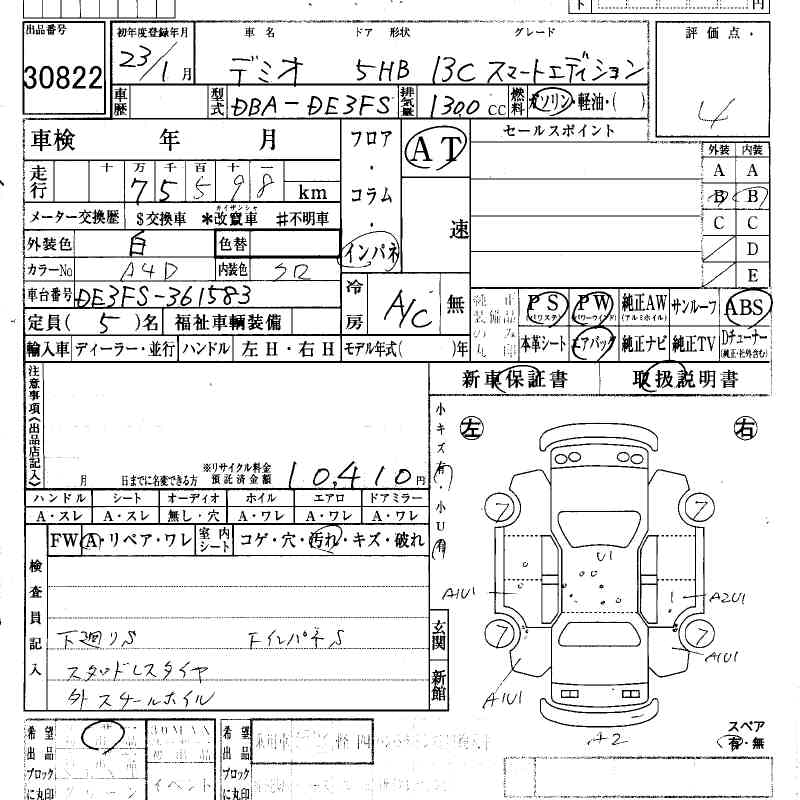 円
出品番号
初年度登録年月
車名
ドア 形状
グレード
評価点・
30822
23/1月
デミオ
5HB
13C スマートエディション
4
車歴
型式
DBA-DE3FS
排気量
1300 cc
燃料
ガソリン・軽油・( )
車検 年 月
フロア・コラム・インパネ
AT
速
セールスポイント
外装 内装
A A
B B
C C
D
E
走行
十 万 千 百 十 一
75598 km
メーター交換歴
$交換車
カイザンシャ
*改竄車
#不明車
外装色
白
色替
カラーNo
A4D
内装色
クロ
車台番号
DE3FS-361583
冷房
A/C
無
定員( 5 )名
福祉車輌装備
PS
(パワステ)
PW
(パワーウインド)
純正AW
(アルミホイル)
サンルーフ
ABS
本革シート
エアバッグ
純正ナビ
純正TV
Dチューナー
(純正・社外含む)
輸入車
ディーラー・並行
ハンドル
左H・右H
モデル年式( )年
新車保証書
取扱説明書
注意事項(出品店記入)
月 日までに名変できる方
※リサイクル料金
預託済金額
10,410円
小キズ有
小U有
左
右
ハンドル シート オーディオ ホイル エアロ ドアミラー
A・スレ A・スレ 無し・穴 A・ワレ A・ワレ A・ワレ
FW A・リペア・ワレ
室内シート
コゲ・穴・汚れ・キズ・破れ
検査員記入
下廻りS
FインパネS
スタッドレスタイヤ
外スチールホイル
玄関
新館
7
7
U1
A1U1
A2U1
7
7
A1U1
A1U1
A2
スペア
有・無
希望出品ブロックに丸印
イベント
希望出品ブロックに丸印